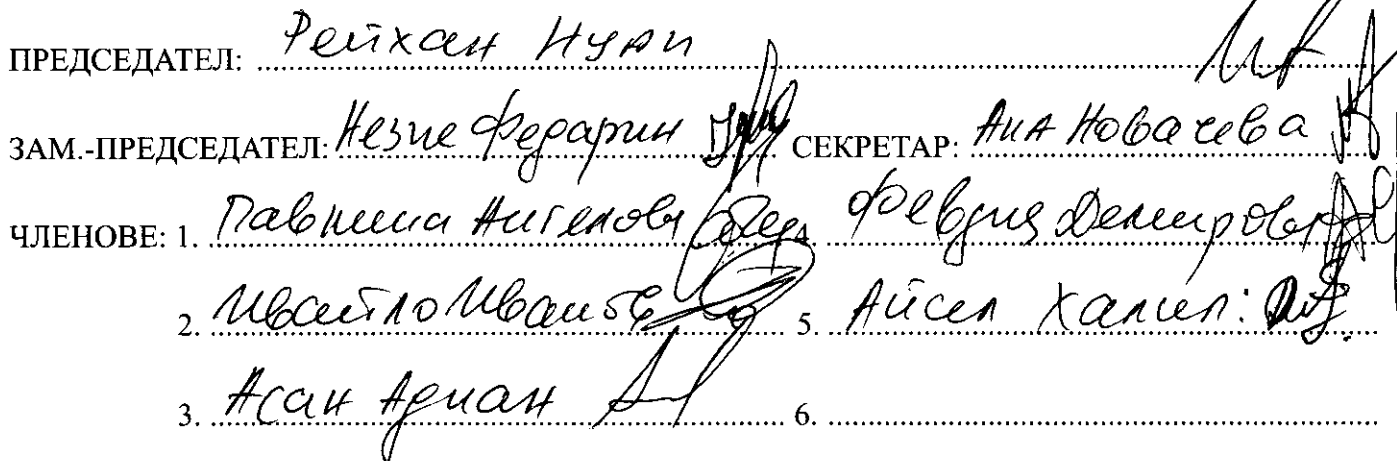 ПРЕДСЕДАТЕЛ: Рейхан Нури
ЗАМ.-ПРЕДСЕДАТЕЛ: Незие Федарин СЕКРЕТАР: Ана Новачева
ЧЛЕНОВЕ: 1. Павлина Ангелова 4. Февзия Демирова
2. Ивайло Иванов 5. Айсел Халил:
3. Асан Аднан 6.